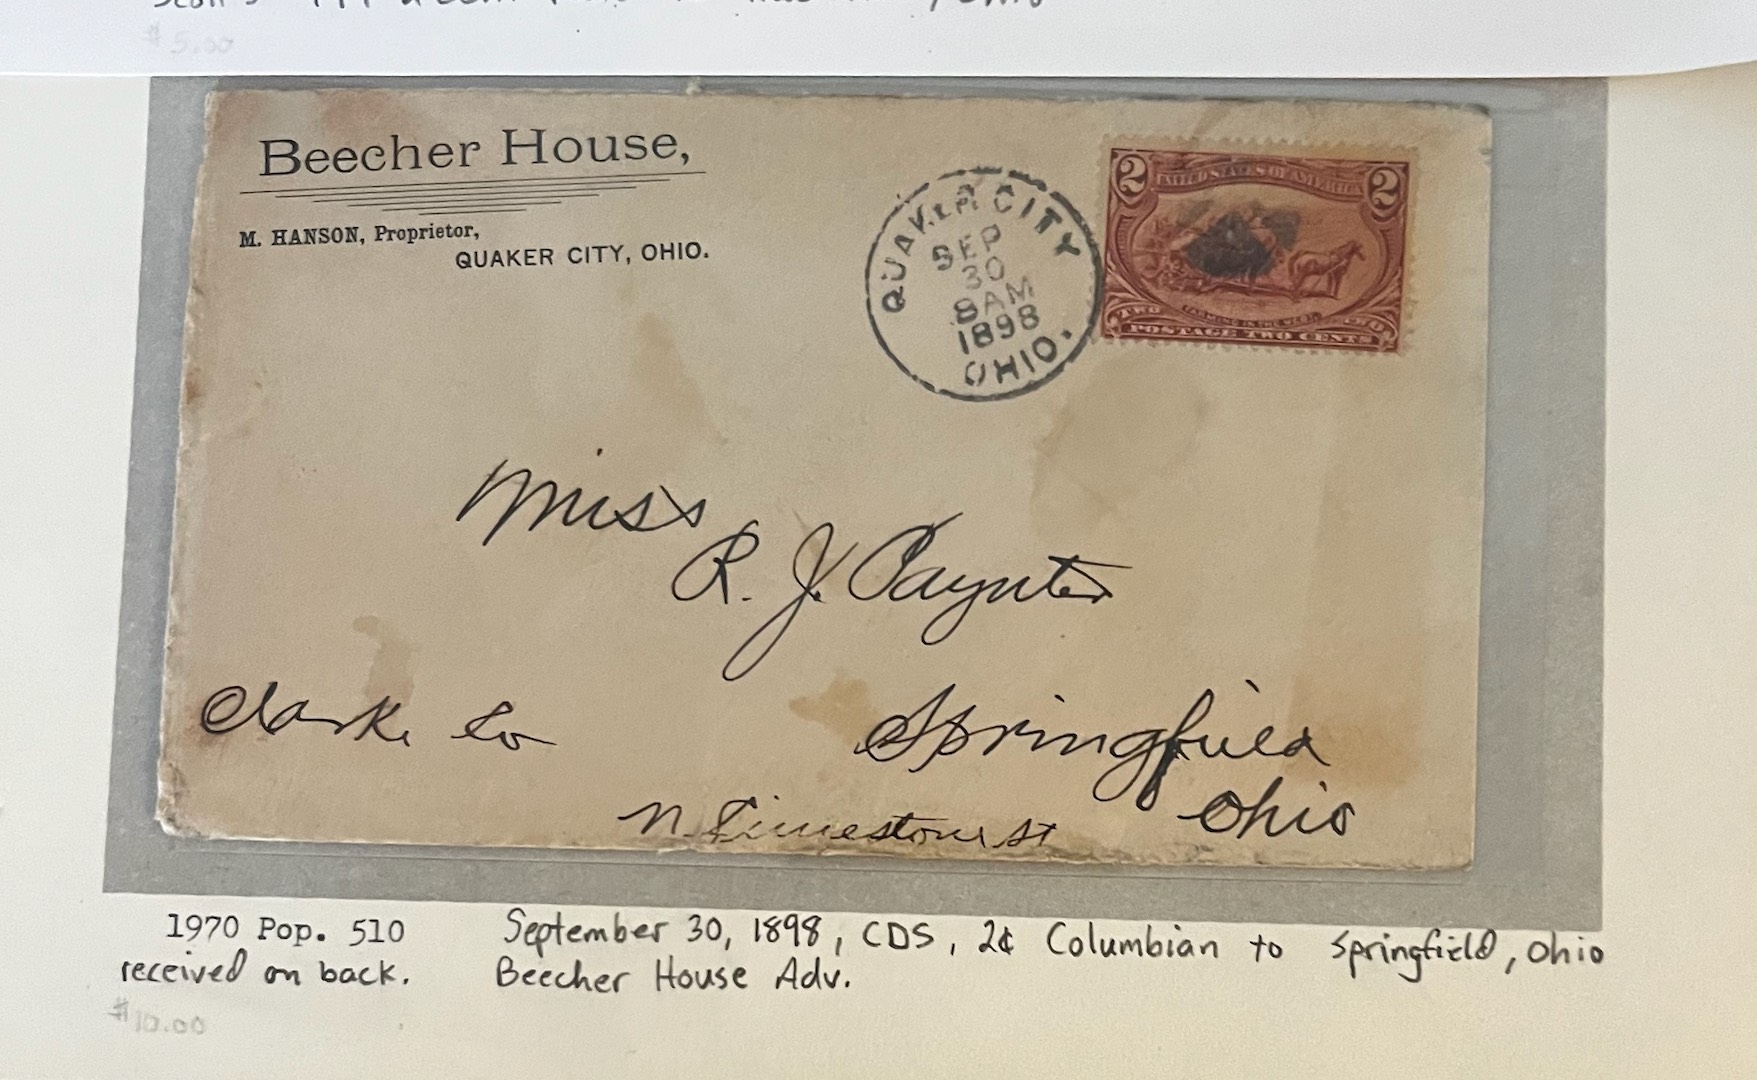 $5.00
Beecher House,
M. HANSON, Proprietor,
QUAKER CITY, OHIO.
QUAKER CITY
SEP
30
8AM
1898
OHIO.
2 UNITED STATES OF AMERICA 2
FARMING IN THE WEST
TWO TWO
POSTAGE TWO CENTS
Miss
R. J. Paynter
Clark Co
Springfield
Ohio
N. Limestone St
1970 Pop. 510 September 30, 1898, CDS, 2¢ Columbian to Springfield, Ohio
received on back. Beecher House Adv.
$10.00